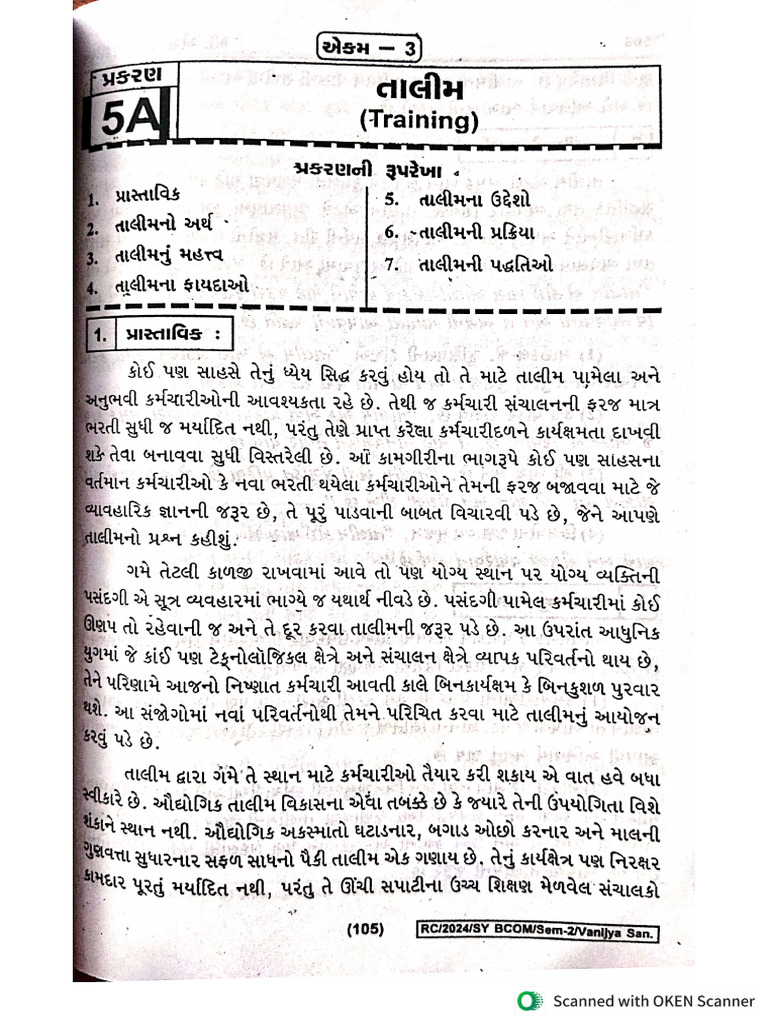 એકમ – 3
પ્રકરણ
5A
તાલીમ
(Training)
પ્રકરણની રૂપરેખા
1. પ્રાસ્તાવિક
2. તાલીમનો અર્થ
3. તાલીમનું મહત્ત્વ
4. તાલીમના ફાયદાઓ
5. તાલીમના ઉદ્દેશો
6. તાલીમની પ્રક્રિયા
7. તાલીમની પદ્ધતિઓ
1. પ્રાસ્તાવિક :
કોઈ પણ સાહસે તેનું ધ્યેય સિદ્ધ કરવું હોય તો તે માટે તાલીમ પામેલા અને
અનુભવી કર્મચારીઓની આવશ્યકતા રહે છે. તેથી જ કર્મચારી સંચાલનની ફરજ માત્ર
ભરતી સુધી જ મર્યાદિત નથી, પરંતુ તેણે પ્રાપ્ત કરેલા કર્મચારીદળને કાર્યક્ષમતા દાખવી
શકે તેવા બનાવવા સુધી વિસ્તરેલી છે. આ કામગીરીના ભાગરૂપે કોઈ પણ સાહસના
વર્તમાન કર્મચારીઓ કે નવા ભરતી થયેલા કર્મચારીઓને તેમની ફરજ બજાવવા માટે જે
વ્યાવહારિક જ્ઞાનની જરૂર છે, તે પૂરું પાડવાની બાબત વિચારવી પડે છે, જેને આપણે
તાલીમનો પ્રશ્ન કહીશું.
ગમે તેટલી કાળજી રાખવામાં આવે તો પણ યોગ્ય સ્થાન પર યોગ્ય વ્યક્તિની
પસંદગી એ સૂત્ર વ્યવહારમાં ભાગ્યે જ યથાર્થ નીવડે છે. પસંદગી પામેલ કર્મચારીમાં કોઈ
ઊણપ તો રહેવાની જ અને તે દૂર કરવા તાલીમની જરૂર પડે છે. આ ઉપરાંત આધુનિક
યુગમાં જે કાંઈ પણ ટેક્નોલૉજિકલ ક્ષેત્રે અને સંચાલન ક્ષેત્રે વ્યાપક પરિવર્તનો થાય છે,
તેને પરિણામે આજનો નિષ્ણાત કર્મચારી આવતી કાલે બિનકાર્યક્ષમ કે બિનકુશળ પુરવાર
થશે. આ સંજોગોમાં નવાં પરિવર્તનોથી તેમને પરિચિત કરવા માટે તાલીમનું આયોજન
કરવું પડે છે.
તાલીમ દ્વારા ગમે તે સ્થાન માટે કર્મચારીઓ તૈયાર કરી શકાય એ વાત હવે બધા
સ્વીકારે છે. ઔદ્યોગિક તાલીમ વિકાસના એવા તબક્કે છે કે જ્યારે તેની ઉપયોગિતા વિશે
શંકાને સ્થાન નથી. ઔદ્યોગિક અકસ્માતો ઘટાડનાર, બગાડ ઓછો કરનાર અને માલની
ગુણવત્તા સુધારનાર સફળ સાધનો પૈકી તાલીમ એક ગણાય છે. તેનું કાર્યક્ષેત્ર પણ નિરક્ષર
કામદાર પૂરતું મર્યાદિત નથી, પરંતુ તે ઊંચી સપાટીના ઉચ્ચ શિક્ષણ મેળવેલ સંચાલકો
(105)
RC/2024/SY BCOM/Sem-2/Vanijya San.
Scanned with OKEN Scanner